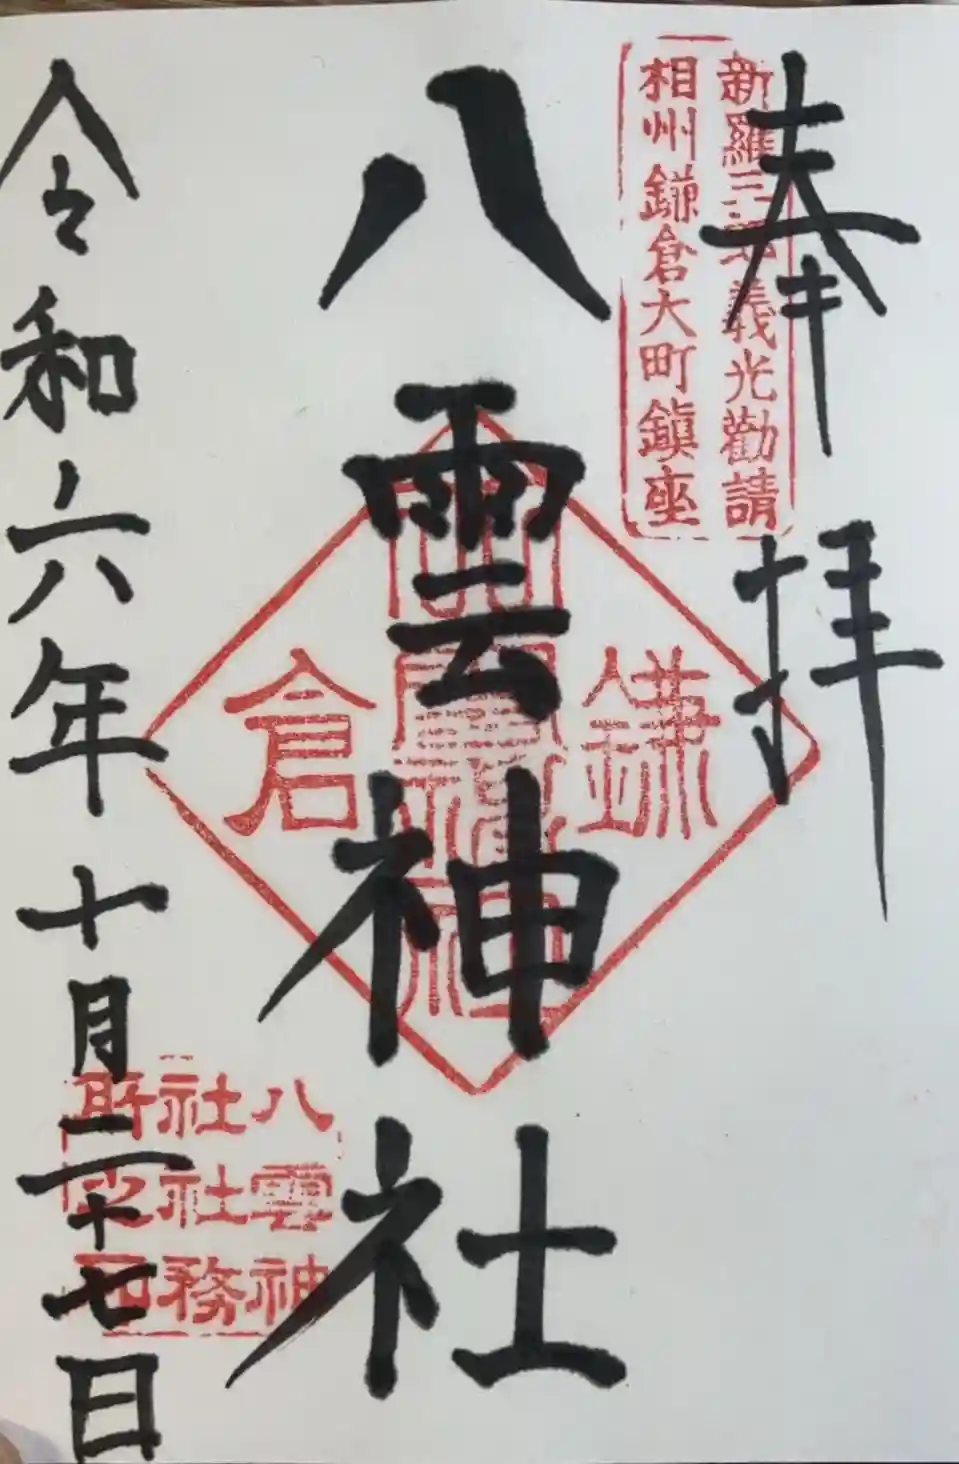 奉拝
新羅三郎義光勧請
相州鎌倉大町鎮座
八雲神社
鎌
倉
令和六年十月二十七日
八雲神
社社務
所之印